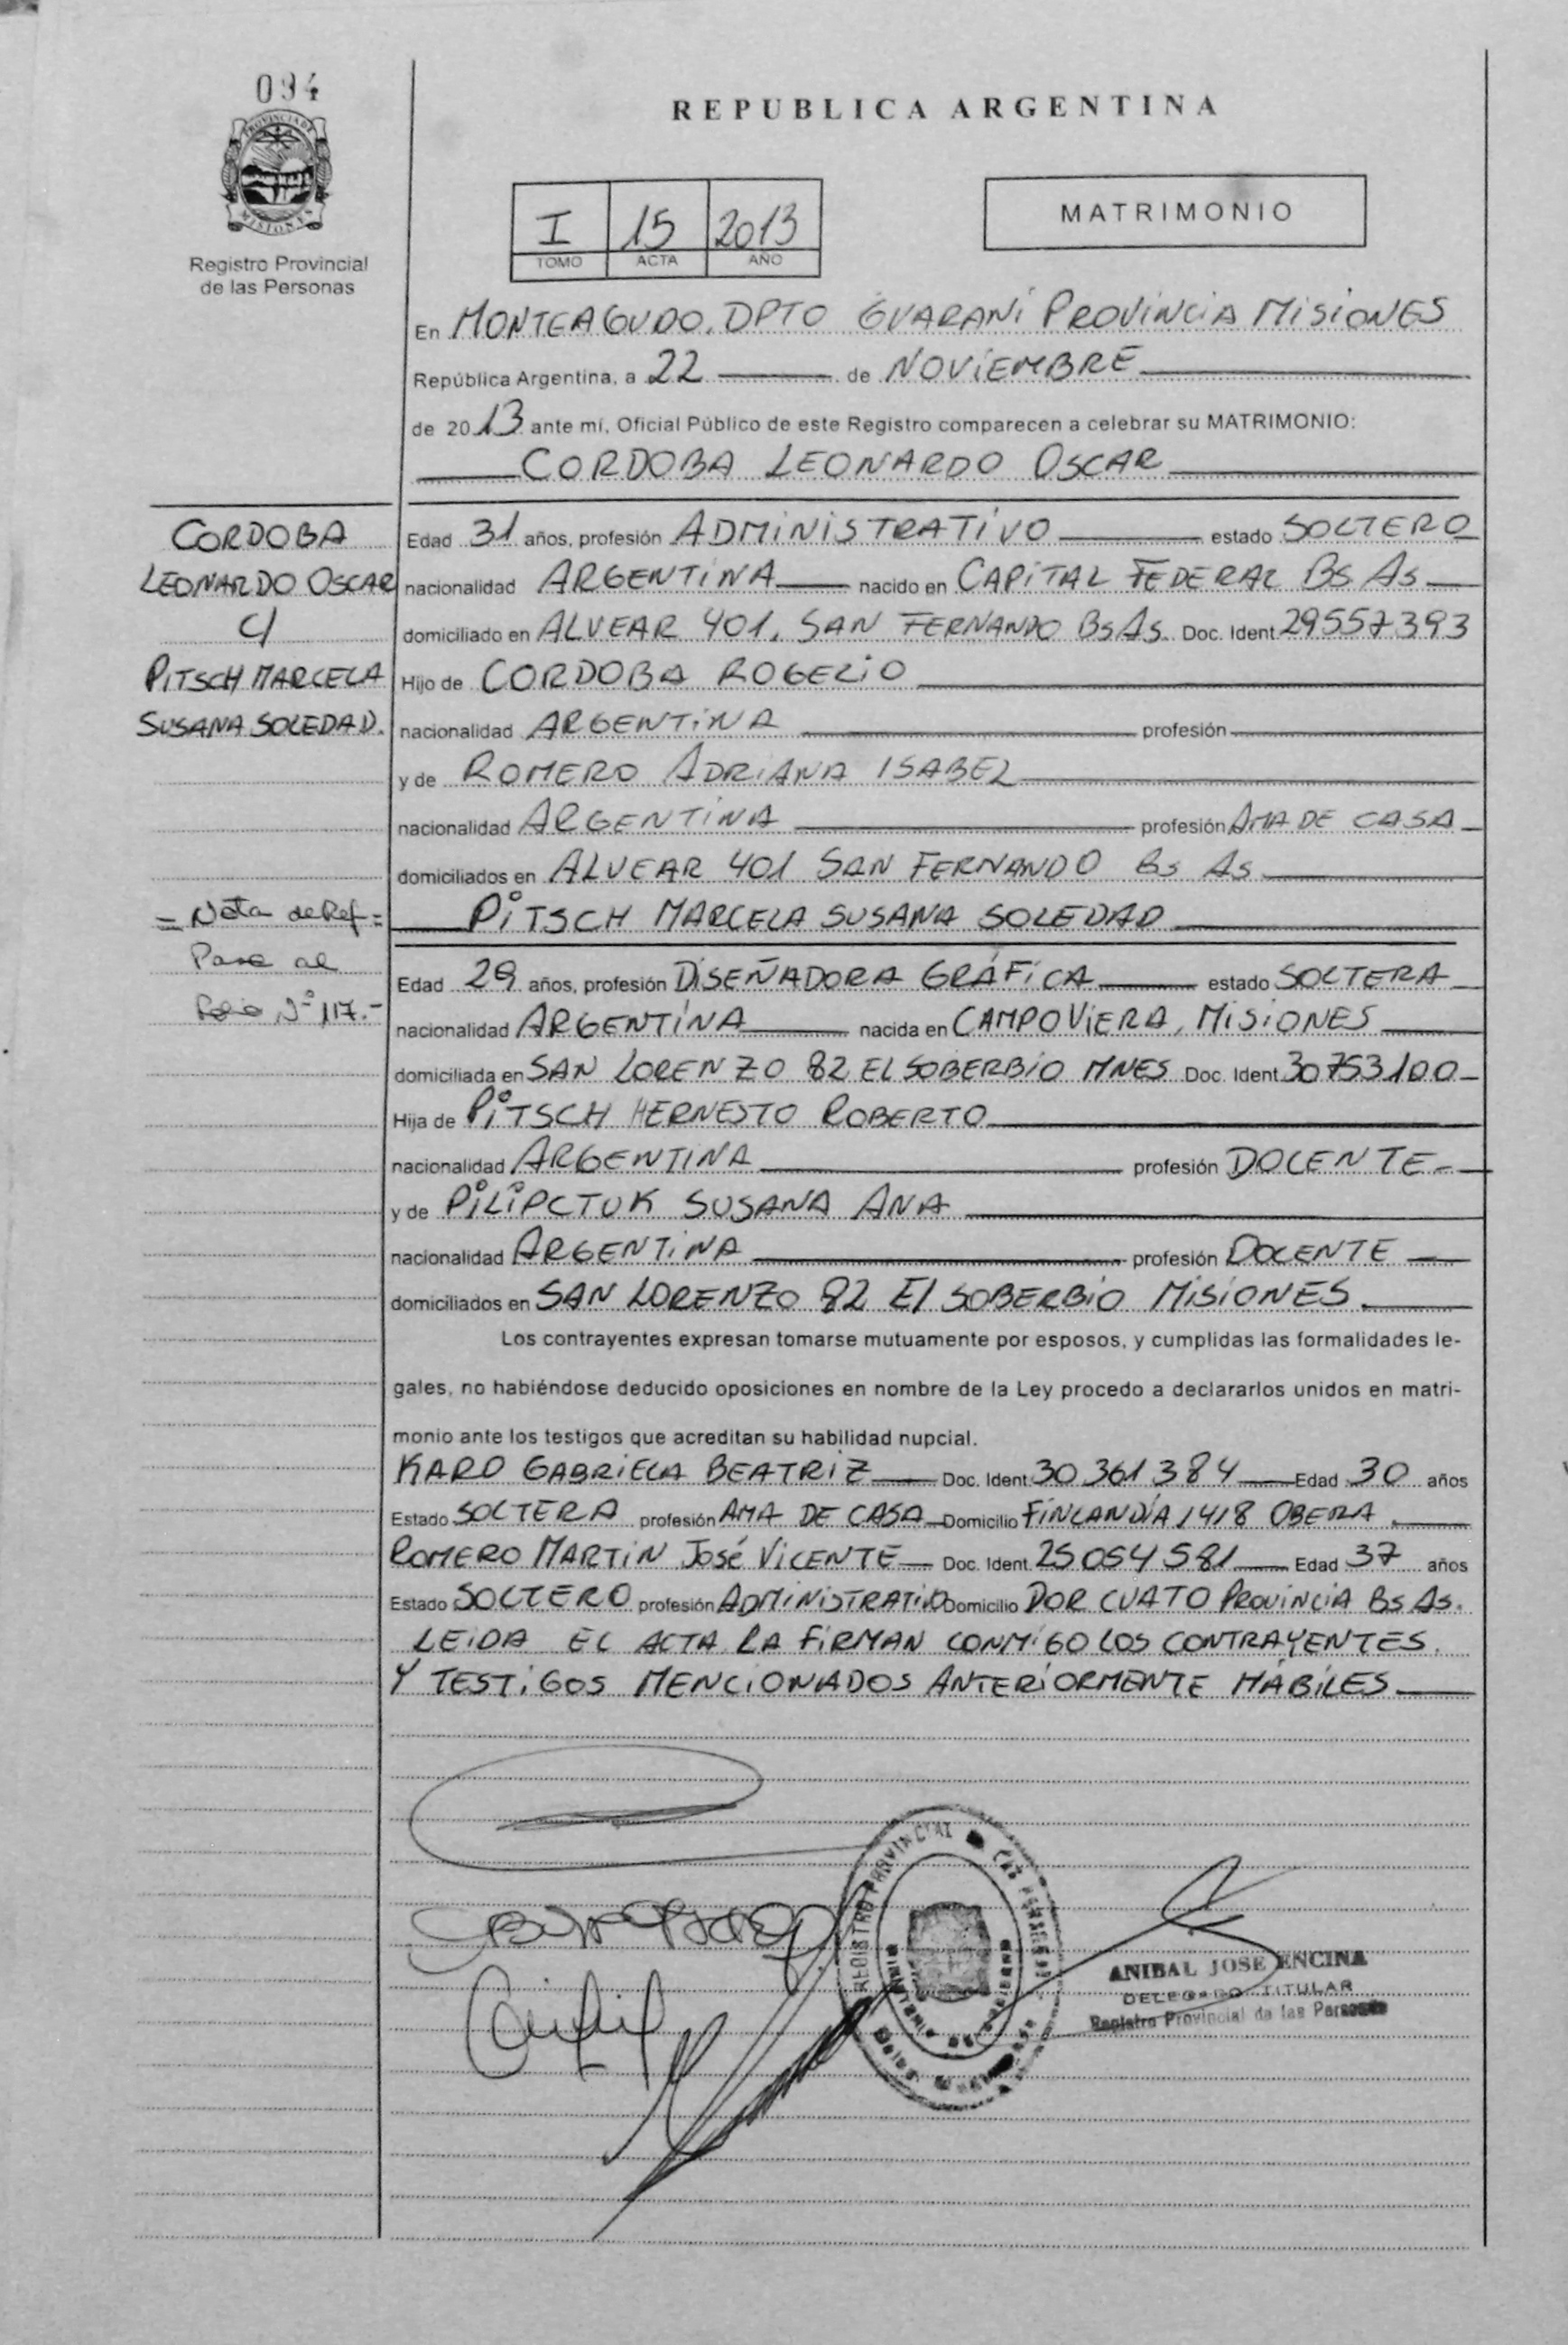 094
PROVINCIA DE
MISIONES
Registro Provincial
de las Personas
REPUBLICA ARGENTINA
I 15 2013
TOMO ACTA AÑO
MATRIMONIO
En MONTEAGUDO. DPTO GUARANÍ PROVINCIA MISIONES
República Argentina, a 22 de NOVIEMBRE
de 2013 ante mí, Oficial Público de este Registro comparecen a celebrar su MATRIMONIO:
CORDOBA LEONARDO OSCAR
CORDOBA
LEONARDO OSCAR
C/
PITSCH MARCELA
SUSANA SOLEDAD.
= Nota de Ref =
Pasa al
Folio N° 117.-
Edad 31 años, profesión ADMINISTRATIVO estado SOLTERO
nacionalidad ARGENTINA nacido en CAPITAL FEDERAL BS AS
domiciliado en ALVEAR 401. SAN FERNANDO BS AS. Doc. Ident 29557393
Hijo de CORDOBA ROGELIO
nacionalidad ARGENTINA profesión
y de ROMERO ADRIANA ISABEL
nacionalidad ARGENTINA profesión AMA DE CASA
domiciliados en ALVEAR 401 SAN FERNANDO BS AS
PITSCH MARCELA SUSANA SOLEDAD
Edad 29 años, profesión DISEÑADORA GRÁFICA estado SOLTERA
nacionalidad ARGENTINA nacida en CAMPO VIERA, MISIONES
domiciliada en SAN LORENZO 82 EL SOBERBIO MNES Doc. Ident 30753100
Hija de PITSCH HERNESTO ROBERTO
nacionalidad ARGENTINA profesión DOCENTE
y de PILIPCTUK SUSANA ANA
nacionalidad ARGENTINA profesión DOCENTE
domiciliados en SAN LORENZO 82 El SOBERBIO MISIONES
Los contrayentes expresan tomarse mutuamente por esposos, y cumplidas las formalidades le-
gales, no habiéndose deducido oposiciones en nombre de la Ley procedo a declararlos unidos en matri-
monio ante los testigos que acreditan su habilidad nupcial.
KARO GABRIELA BEATRIZ Doc. Ident 30361384 Edad 30 años
Estado SOLTERA profesión AMA DE CASA Domicilio FINLANDÍA 1418 OBERA
ROMERO MARTIN JOSÉ VICENTE Doc. Ident. 25054581 Edad 37 años
Estado SOLTERO profesión ADMINISTRATIVO Domicilio DOR CUATO PROVINCIA BS AS.
LEIDA EL ACTA LA FIRMAN CONMIGO LOS CONTRAYENTES.
Y TESTIGOS MENCIONADOS ANTERIORMENTE HÁBILES
REGISTRO PROVINCIAL DE LAS PERSONAS
MINISTERIO DE GOBIERNO
ANIBAL JOSE ENCINA
DELEGADO TITULAR
Registro Provincial de las Personas